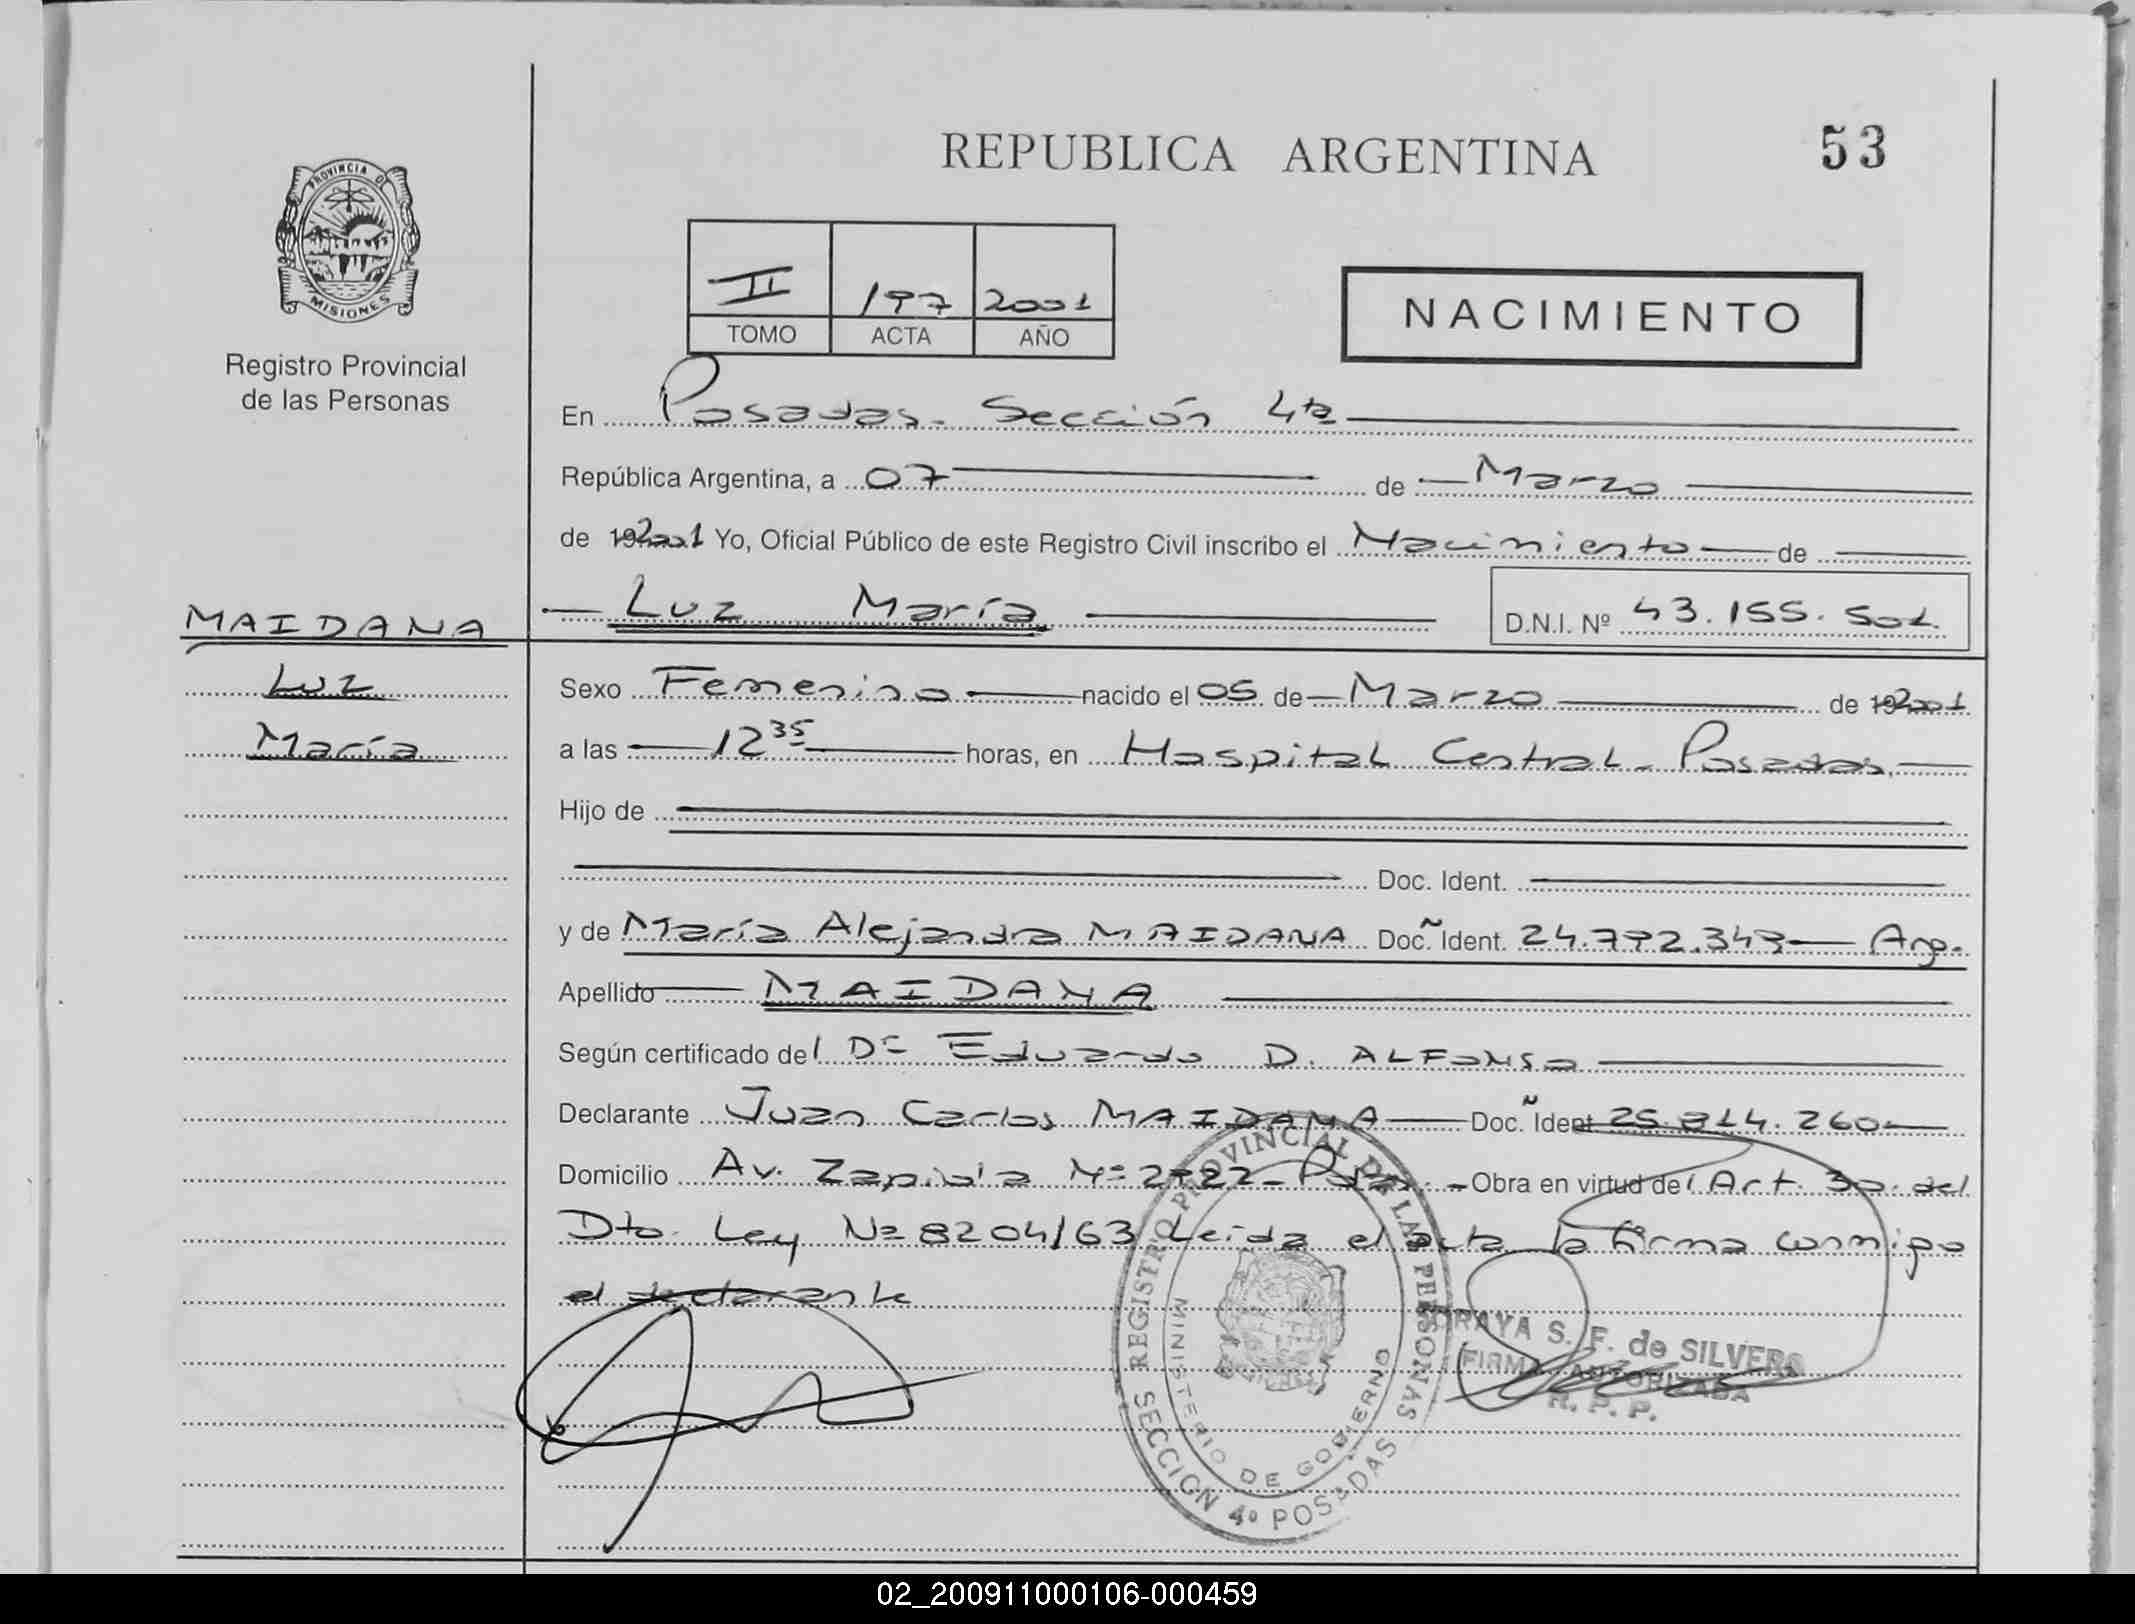 REPUBLICA ARGENTINA
53
PROVINCIA DE
MISIONES
Registro Provincial
de las Personas
II 197 2001
TOMO ACTA AÑO
NACIMIENTO
En Posadas - Sección 4ta
República Argentina, a 07 de Marzo
de 2001 Yo, Oficial Público de este Registro Civil inscribo el Nacimiento de
Luz María
D.N.I. Nº 43.155.501.
MAIDANA
Luz
María
Sexo Femenino nacido el 05 de Marzo de 2001
a las 12 35 horas, en Hospital Central - Posadas.
Hijo de
Doc. Ident.
y de María Alejandra MAIDANA Doc. Ident. 24.792.349 Arg.
Apellido MAIDANA
Según certificado del Dr Eduardo D. ALFONSO
Declarante Juan Carlos MAIDANA Doc. Ident 25.814.260
Domicilio Av. Zapiola Nº Obra en virtud del Art. 30 del
Dto. Ley Nº 8204/63 Leída el acta la firma conmigo
el declarante
REGISTRO PROVINCIAL DE LAS PERSONAS
MINISTERIO DE GOBIERNO
SECCION 4º POSADAS
SORAYA S. F. de SILVERO
FIRMA AUTORIZADA
R. P. P.
02_200911000106-000459